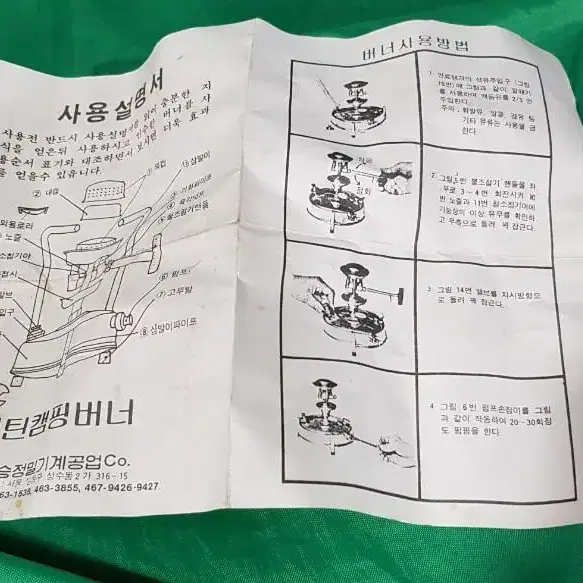 사용설명서
사용전 반드시 사용설명서를 읽어 충분한 지
식을 얻은뒤 사용하시고 버너를 사
용순서 표기와 대조하면서 보시면 더욱 효과
를 얻을수 있읍니다.
② 내캡
① 외캡
⑬ 심말이
③ 기화파이프
⑤ 불조절기핸들
외용로라
노즐
소침기아
접시
밸브
입구
⑥ 펌프
⑦ 고무발
⑧ 심말이파이프
틴캠핑버너
승정밀기계공업Co.
상수동 2가 316-15
63-1538, 463-3855, 467-9426-9427
버너사용방법
1 연료탱크의 석유주입구 (그림
15번)에 그림과 같이 깔때기
를 사용하여 백등유를 2/3 만
주입한다.
주의 : 휘발유, 알콜, 경유 등
기타 유류는 사용을 금
한다.
점검
2 그림 5번 불조절기 핸들을 좌
우로 3~4번 회전시켜 10
번 노즐과 11번 청소침기어에
기능상의 이상 유무를 확인하
고 우측으로 돌려 꼭 잠근다.
3 그림 14번 밸브를 지시방향으
로 돌려 꼭 잠근다.
4 그림 6번 펌프손잡이를 그림
과 같이 작동하여 20~30회정
도 펌핑을 한다.